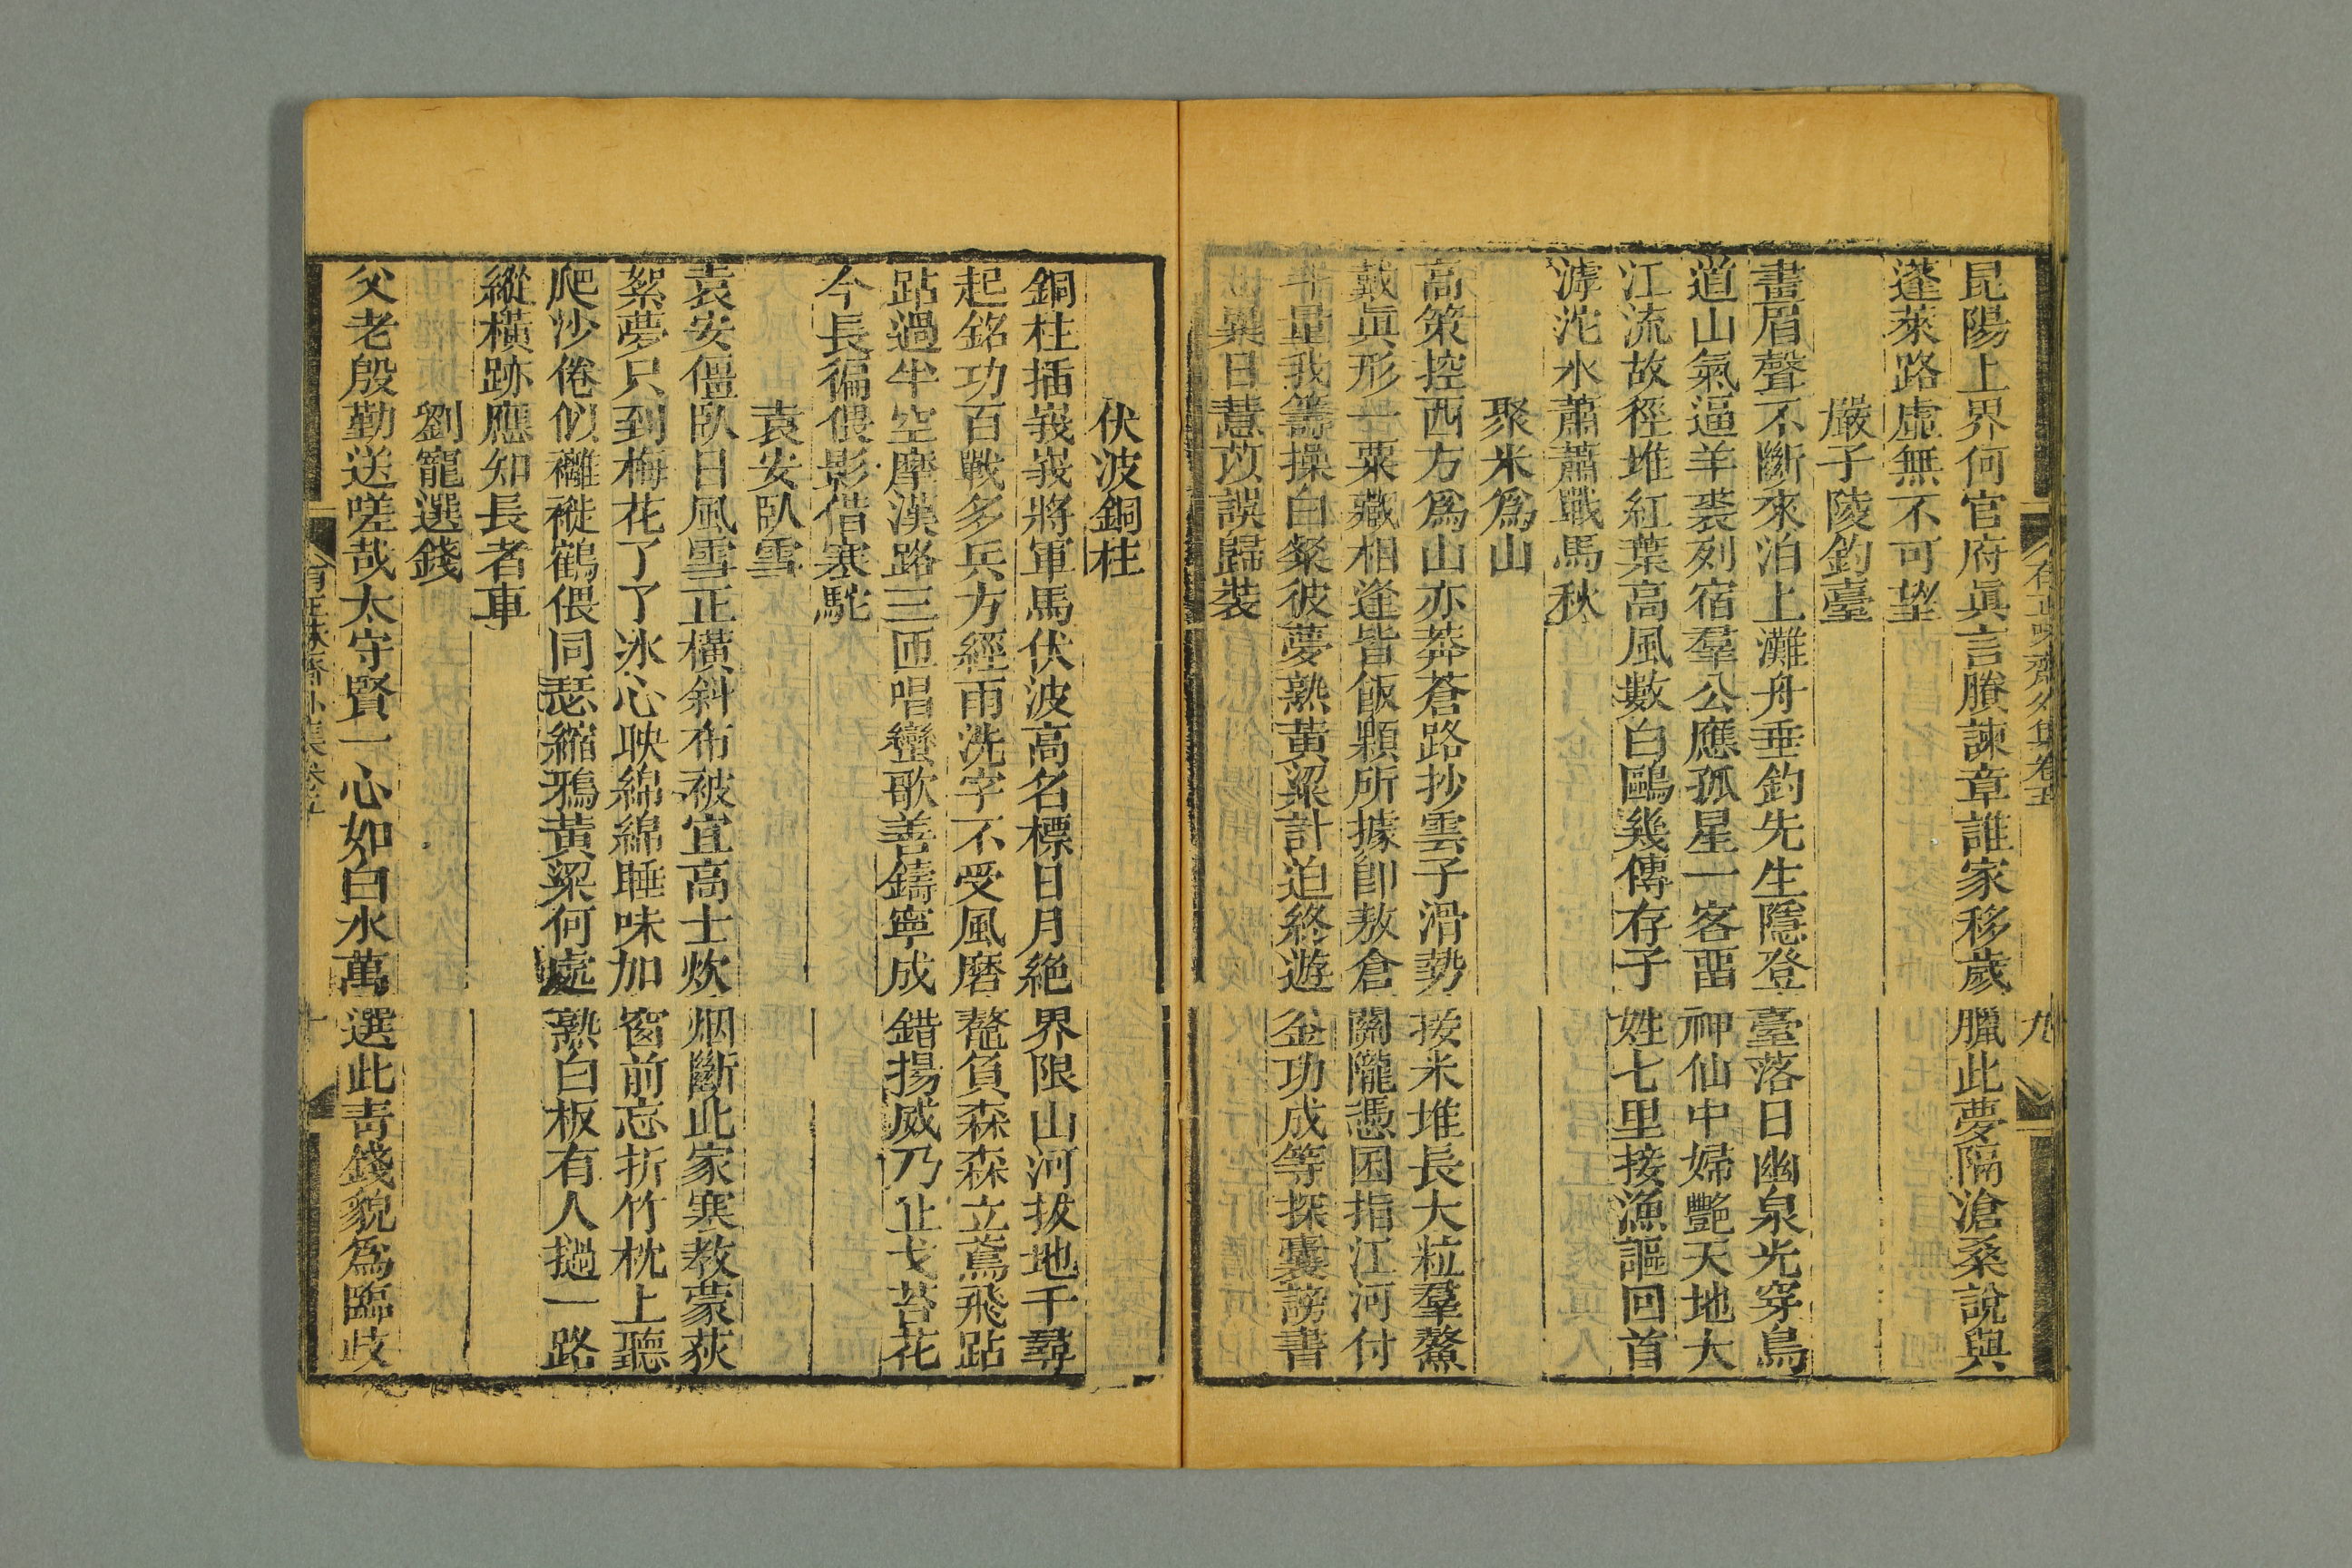 有正味齋外集卷五
九
昆陽上界何官府眞言賸諫章誰家移歲臘此夢隔滄桑說與
蓬萊路虛無不可望
嚴子陵釣臺
畫眉聲不斷來泊上灘舟垂釣先生隱登臺落日幽泉光穿鳥
道山氣逼羊裘列宿羣公應孤星一客畱神仙中婦艷天地大
江流故徑堆紅葉高風數白鷗幾傳存子姓七里接漁謳回首
滹沱水蕭蕭戰馬秋
聚米爲山
高策控西方爲山亦莽蒼路抄雲子滑勢接米堆長大粒羣鰲
戴眞形一粟藏相逢皆飯顆所據卽敖倉關隴憑囷指江河付
斗量我籌操白粲彼夢熟黃粱計迫終遊釜功成等探囊謗書
他異日薏苡誤歸裝
伏波銅柱
銅柱插峩峩將軍馬伏波高名標日月絕界限山河拔地千尋
起銘功百戰多兵方經雨洗字不受風磨鼇負森森立鳶飛跕
跕過半空摩漢路三匝唱蠻歌善鑄寧成錯揚威乃止戈苔花
今長徧偎影借寒駝
袁安臥雪
袁安僵臥日風雪正橫斜布被宜高士炊烟斷此家寒教蒙荻
絮夢只到梅花了了冰心映綿綿睡味加窗前忘折竹枕上聽
爬沙倦似離褷鶴偎同瑟縮鴉黃粱何處熟白板有人撾一路
縱橫跡應知長者車
劉寵選錢
父老殷勤送嗟哉太守賢一心如白水萬選此靑錢貌爲臨歧
有正味齋外集卷五
十